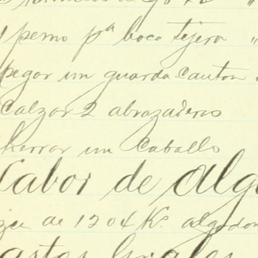 1 perno pª boca tijera "
pegar un guarda canton
Calzar 2 abrazaderas
herrar un caballo
Labor de alg
de 1204 K. algodon